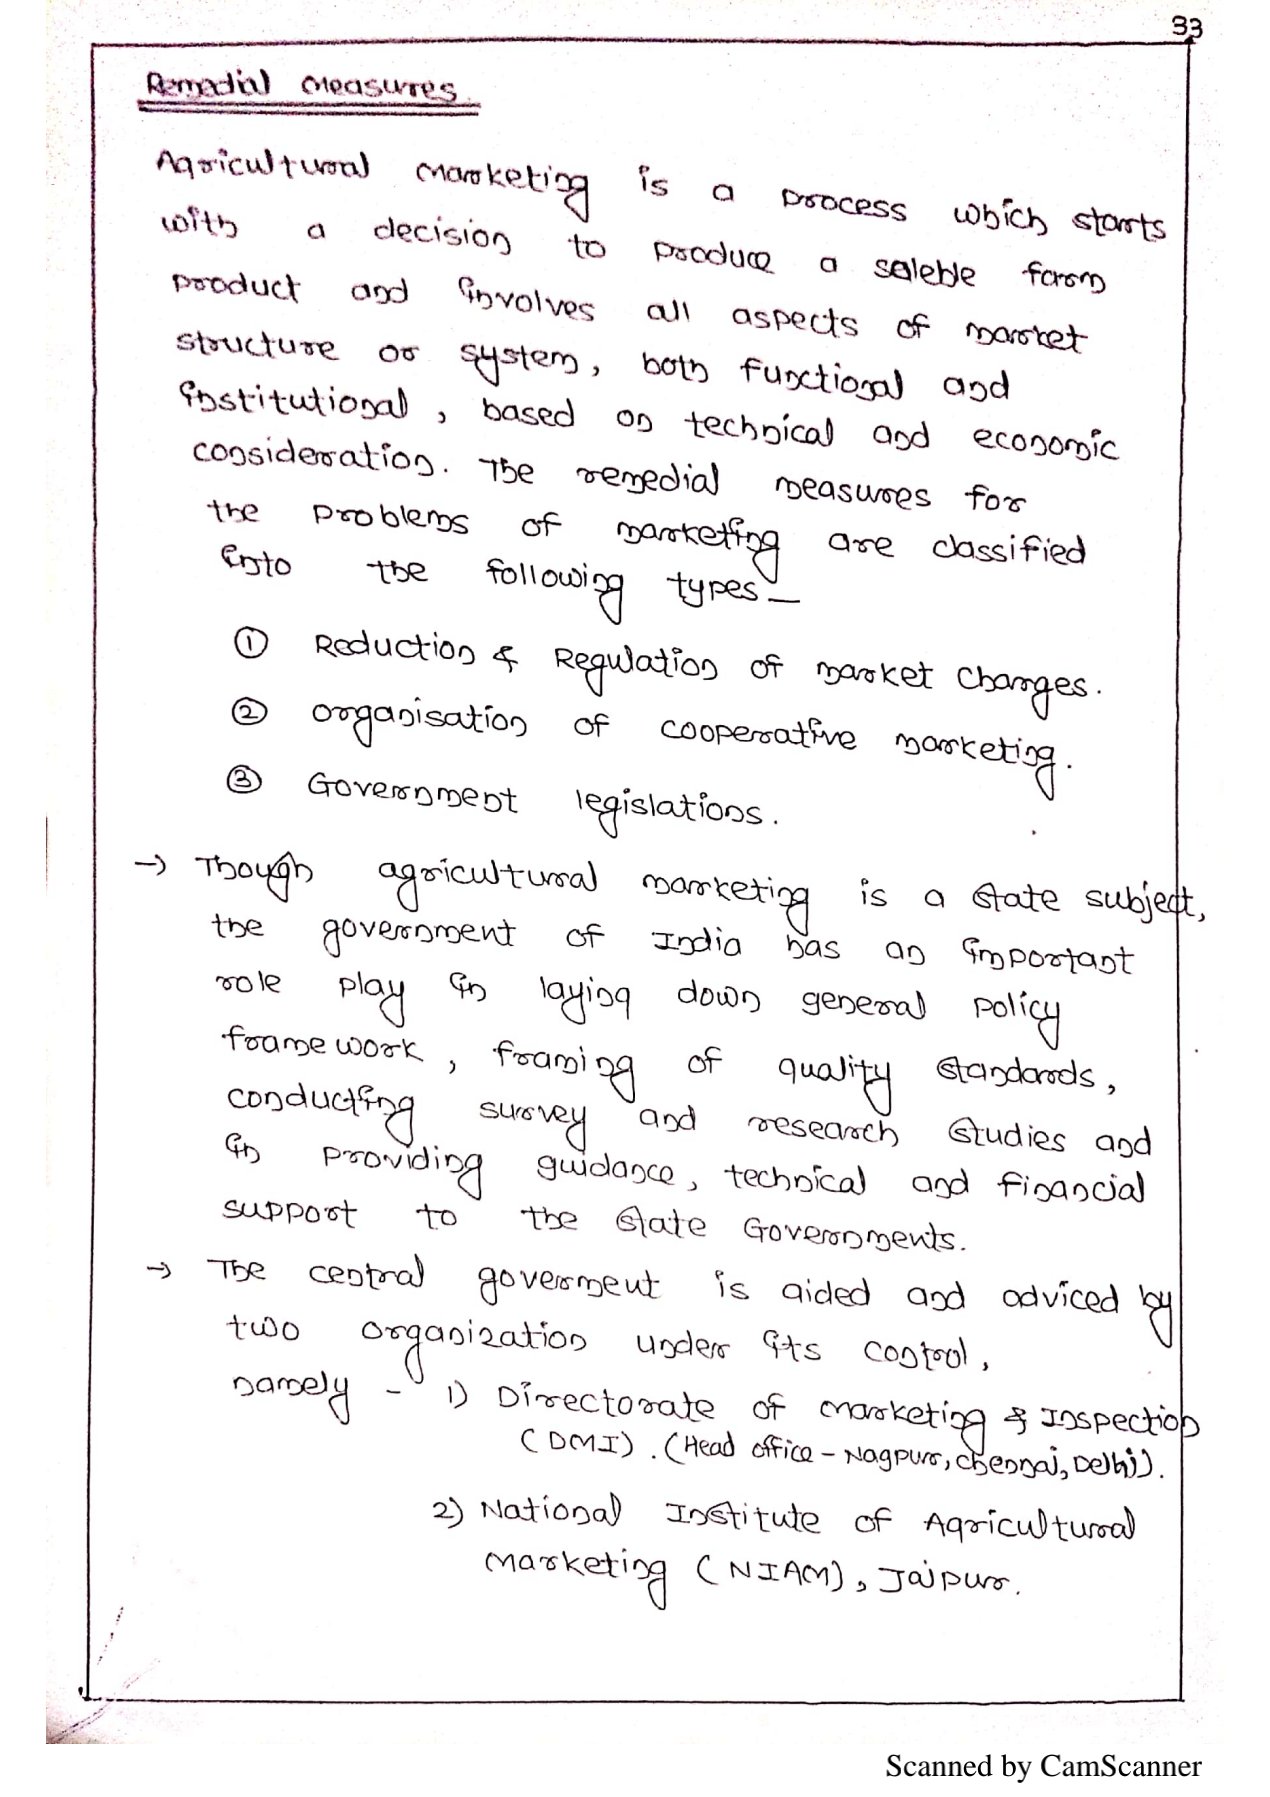 33
Remedial Measures.
Agricultural Marketing is a process which starts
with a decision to produce a saleble farm
product and involves all aspects of market
structure or system, both functional and
institutional, based on technical and economic
consideration. The remedial measures for
the problems of marketing are classified
into the following types-
① Reduction & Regulation of market charges.
② Organisation of cooperative marketing.
③ Government legislations.
→ Though agricultural marketing is a state subject,
the government of India has an important
role play in laying down general policy
framework, framing of quality standards,
conducting survey and research studies and
in providing guidance, technical and financial
support to the state Governments.
→ The central goverment is aided and adviced by
two organization under its control,
namely - 1) Directorate of Marketing & Inspection
(DMI). (Head office - Nagpur, Chennai, Delhi).
2) National Institute of Agricultural
Marketing (NIAM), Jaipur.
Scanned by CamScanner